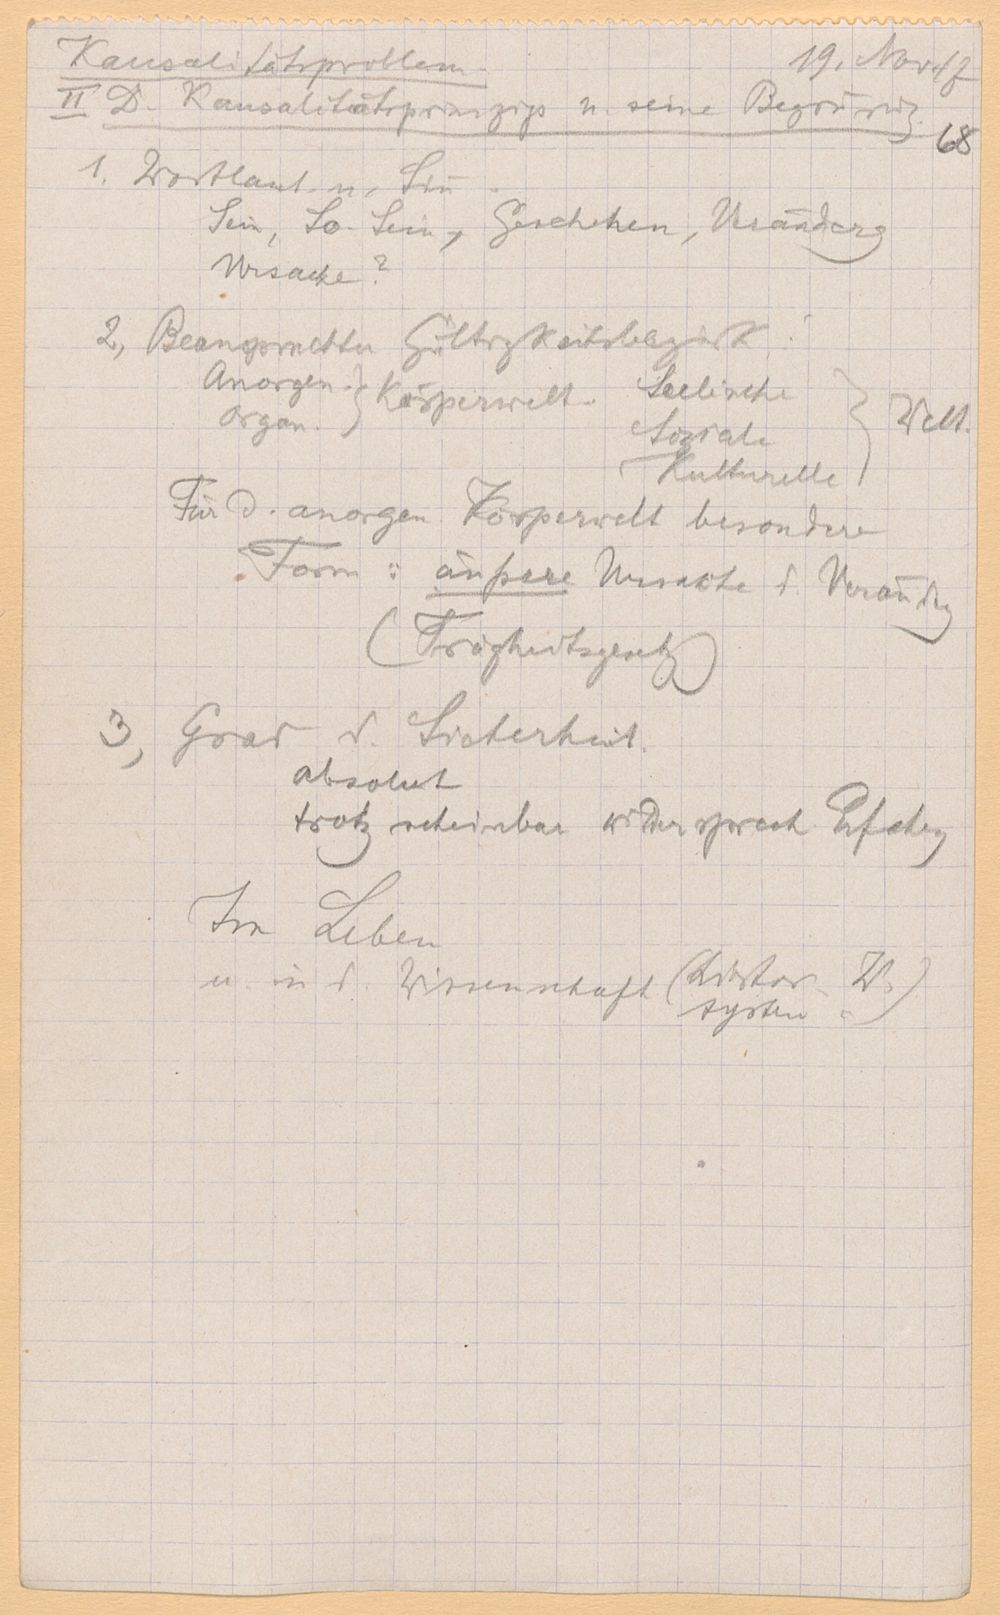 Kausalitätsproblem 19. Nov. 47
II D. Kausalitätsprinzip u. seine Begründg.
68
1. Wortlaut u. Sin̄.
Sein, So-Sein, Geschehen, Veränderg
Ursache?
2, Beanspruchter Gültigkeitsbezirk:
Anorgan. } Körperwelt. Seelische } Welt.
Organ. Soziale
Kulturelle
Für d. anorgan Körperwelt besondere
Form: äußere Ursache d. Verändrg
(Trägheitsgesetz)
3, Grad d. Sicherheit.
absolut
trotz scheinbar widersprech Erfahrg
Im Leben
u. in d. Wissenschaft (histor. W.)
system "